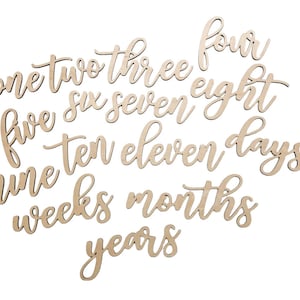 one two three four
five six seven eight
nine ten eleven days
weeks months
years